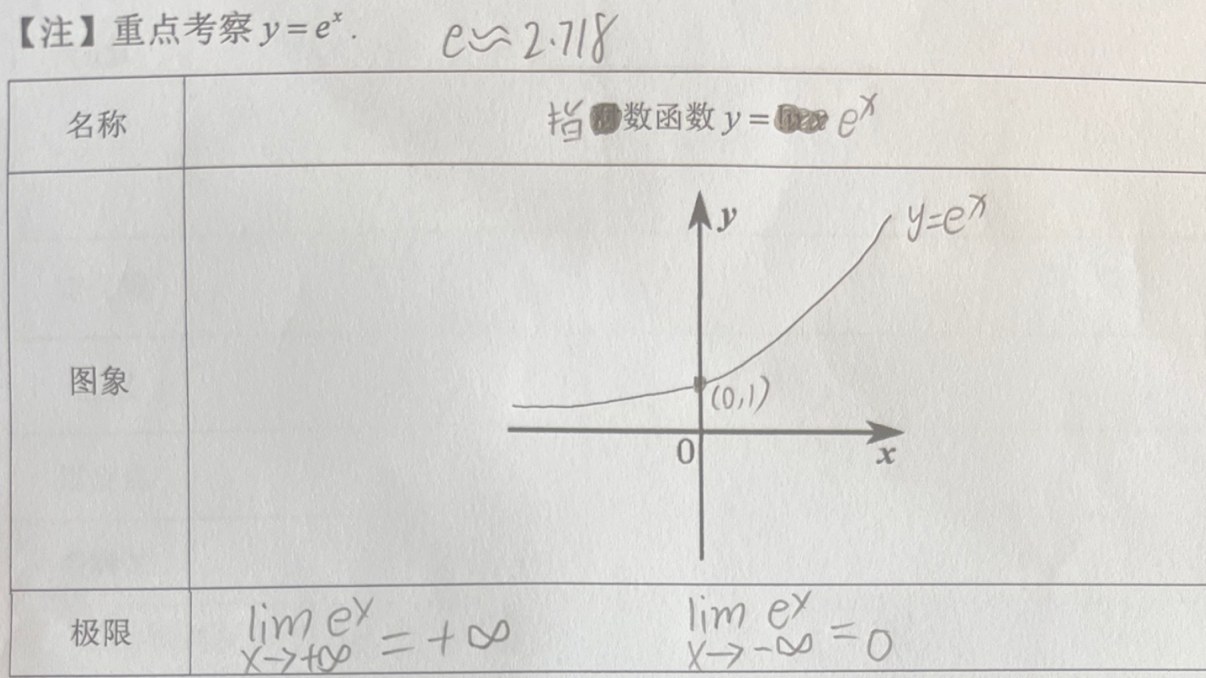 【注】重点考察 y = eˣ. e≈2.718
名称
指数函数 y = eˣ
图象
y
y=eˣ
(0,1)
0
x
极限
lim eˣ = +∞ lim eˣ = 0
x→+∞ x→-∞